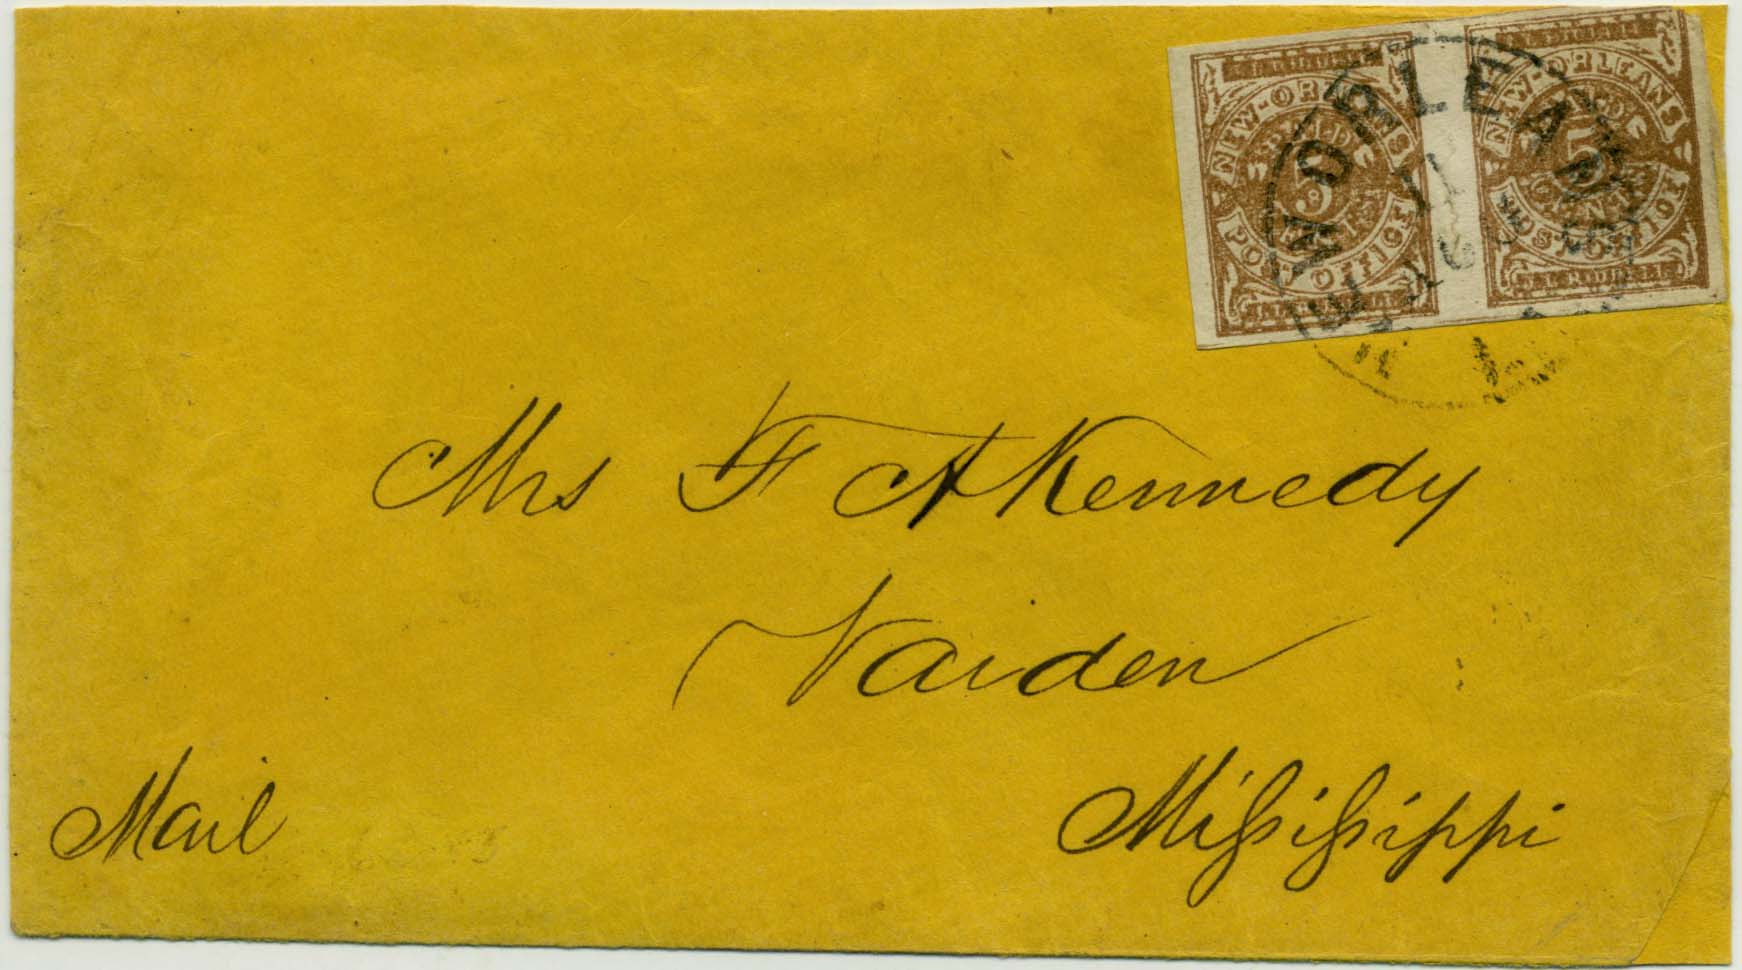 NEW-ORLEANS
5
POST OFFICE
NEW-ORLEANS
5
POST OFFICE
NEW ORLEANS
Mrs F A Kennedy
Vaiden
Mississippi
Mail